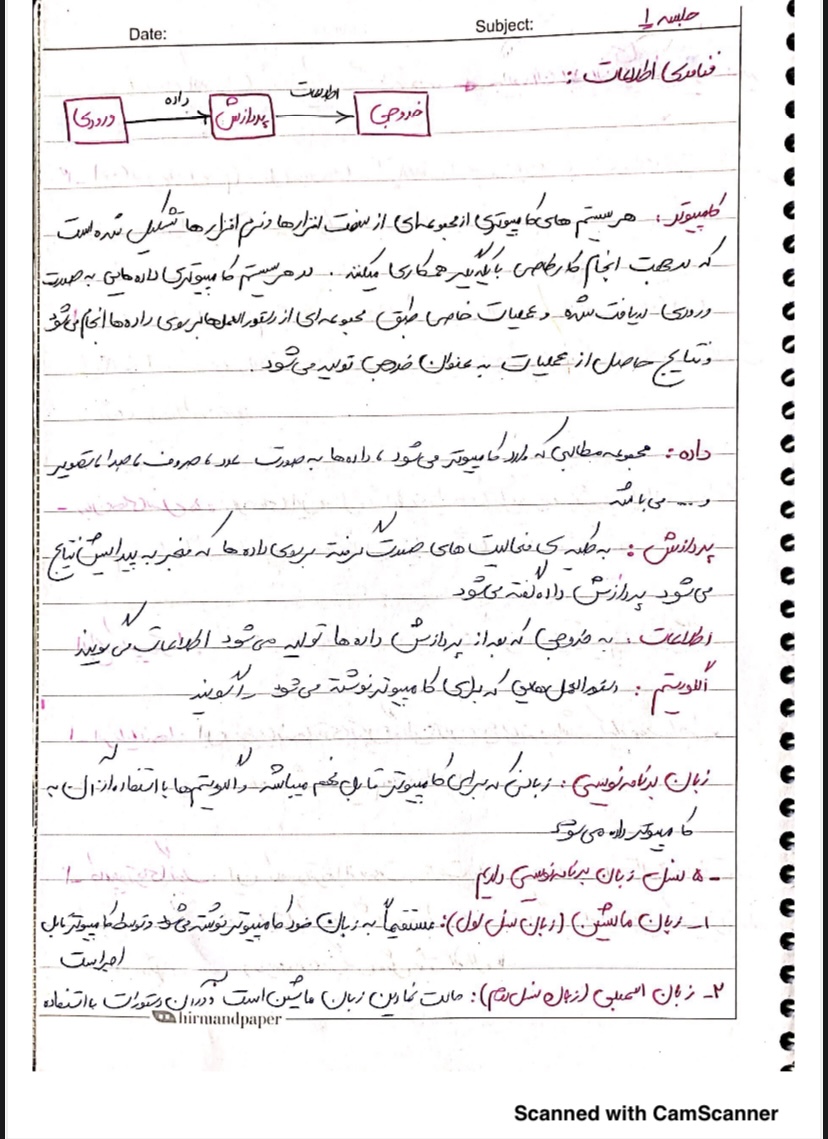 جلسه ۱
Date:
Subject:
فناوری اطلاعات :
ورودی داده پردازش اطلاعات خروجی
کامپیوتر : هر سیستم های کامپیوتری از مجموعه ای از سخت افزارها و نرم افزار ها تشکیل شده است
که در جهت انجام کار خاصی با یکدیگر همکاری میکنند . در هر سیستم کامپیوتری داده هایی به صورت
ورودی دریافت شده و عملیات خاصی طبق مجموعه ای از دستورالعملها بر روی داده ها انجام می شود
و نتایج حاصل از عملیات به عنوان خروجی تولید می شود .
داده : مجموعه مطالبی که وارد کامپیوتر می شود ، داده ها به صورت عدد ، حروف ، صدا ، تصویر
و .... می باشد
پردازش : به کلیه ی فعالیت های صورت گرفته بر روی داده ها که منجر به پیدایش نتایج
می شود پردازش داده گفته می شود
اطلاعات : به خروجی که بعد از پردازش داده ها تولید می شود اطلاعات می گویند
الگوریتم : دستورالعمل هایی که برای کامپیوتر نوشته می شود را گویند
زبان برنامه نویسی : زبانی که برای کامپیوتر قابل فهم میباشد و الگوریتم ها با استفاده از آن به
کامپیوتر داده می شود
- ۵ نسل زبان برنامه نویسی داریم
۱- زبان ماشین (زبان نسل اول) : مستقیماً به زبان خود کامپیوتر نوشته می شود و توسط کامپیوتر قابل
اجرا است
۲- زبان اسمبلی (زبان نسل دوم) : حالت نمادین زبان ماشین است و در آن دستورات با استفاده
hirmandpaper
Scanned with CamScanner